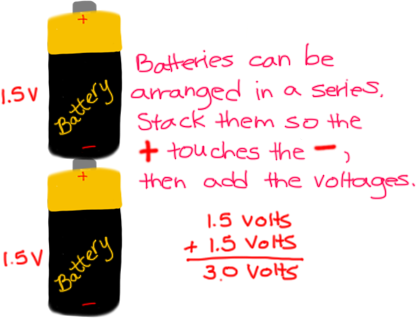 +
1.5 V
Battery
−
Batteries can be
arranged in a series.
Stack them so the
+ touches the −,
then add the voltages.
+
1.5 V
Battery
−
1.5 Volts
+ 1.5 Volts
3.0 Volts